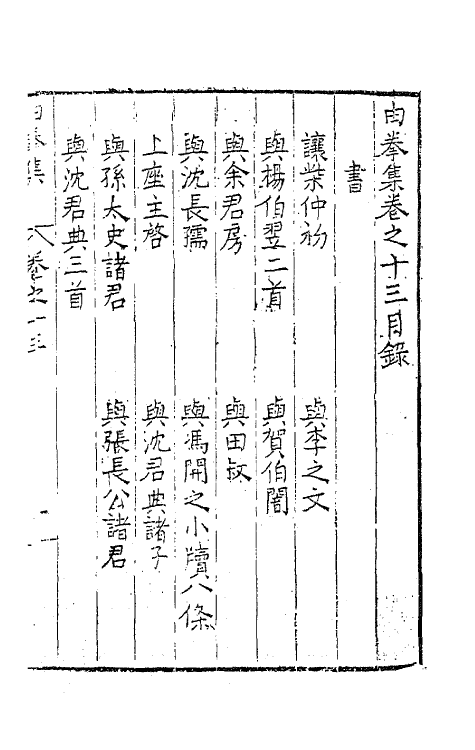 由拳集卷之十三目錄
書
讓柴仲初 與李之文
與楊伯翌二首 與賀伯闇
與余君房 與田叔
與沈長孺 與馮開之小牘八條
上座主啓 與沈君典諸子
與孫太史諸君 與張長公諸君
與沈君典三首
由拳集 卷之十三 一